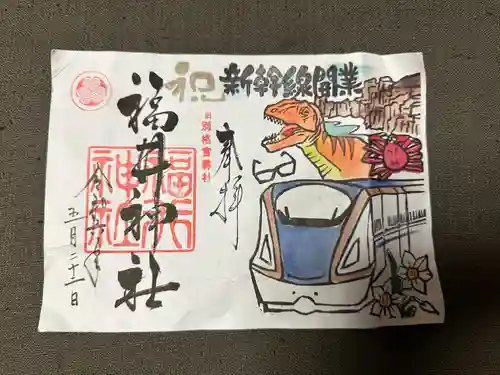 祝 新幹線開業
奉拝
旧別格官幣社
福井神社
福井神社
令和六年
五月二十二日